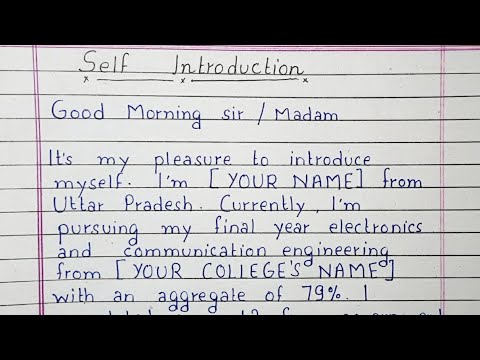 Self Introduction
Good Morning sir / Madam
It's my pleasure to introduce
myself. I'm [YOUR NAME] from
Uttar Pradesh. Currently, I'm
pursuing my final year electronics
and communication engineering
from [YOUR COLLEGE'S NAME]
with an aggregate of 79%. I